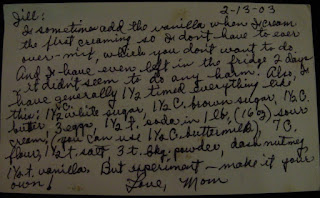 Jill: 2-13-03
I sometimes add the vanilla when I cream
the first creaming so I don't have to ever
over-mix, which you don't want to do.
And I have even left in the fridge 2 days
& it didn't seem to do any harm. Also, I
have generally 1½ timed everything like
this; 1½ C white sugar, 1½ C. brown sugar, 1½ C.
butter 3 eggs 1½ t. soda in 1 lb. (16 oz) sour
cream, (you can use 1½ C. buttermilk), 7 C.
flour, 1½ t. salt, 3 t. bkg. powder, dash nutmeg
1½ t. vanilla. But experiment - make it your
own! Love, Mom